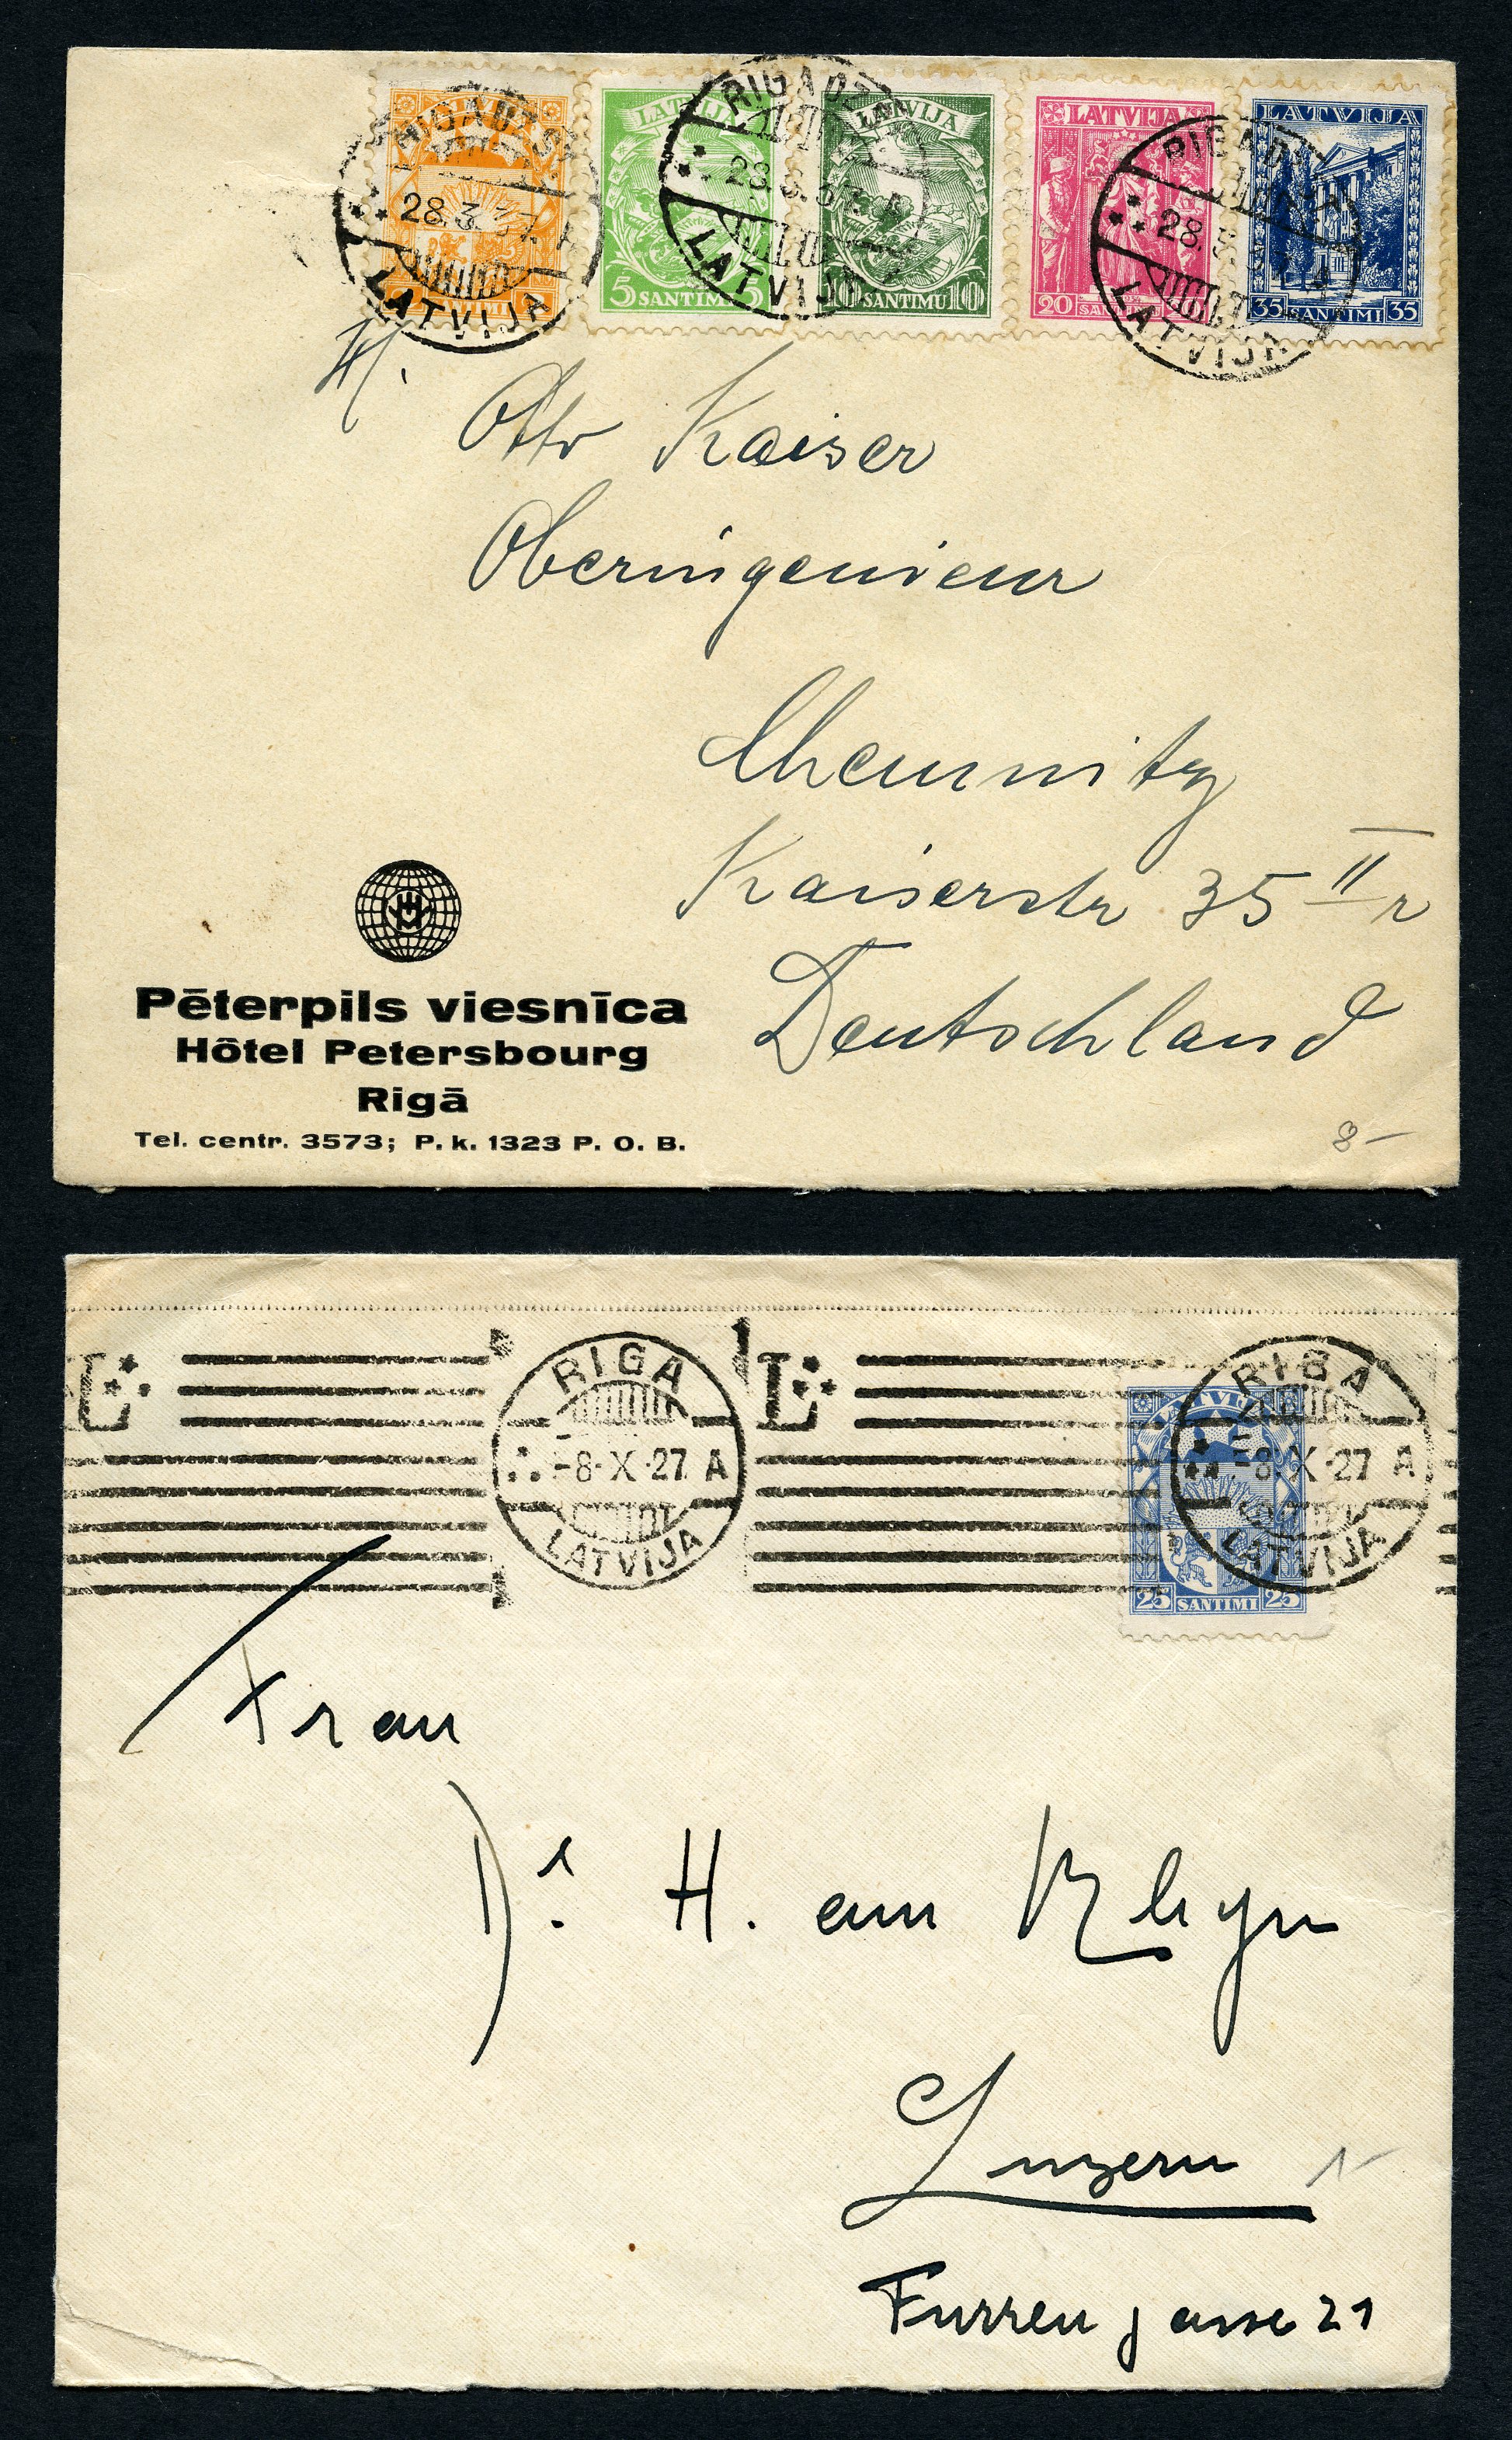 LATVIJA
5 SANTIMI 5
LATVIJA
10 SANTIMU 10
LATVIJA
20
LATVIJA
35 SANTIMI 35
RIGA DZ.
28.3.37. A
LATVIJA
RIGA DZ.
28.3.37. A
LATVIJA
RIGA DZ.
28.3.37. A
LATVIJA
H.
Otto Kaiser
Oberingenieur
Chemnitz
Kaiserstr 35 II r
Deutschland
Pēterpils viesnīca
Hôtel Petersbourg
Rigā
Tel. centr. 3573; P. k. 1323 P. O. B.
8-
L
RIGA
-8.X.27 A
LATVIJA
L
RIGA
-8.X.27 A
LATVIJA
LATVIJA
25 SANTIMI 25
Frau
Dr. H. am Rhyn
Luzern
Furrengasse 21